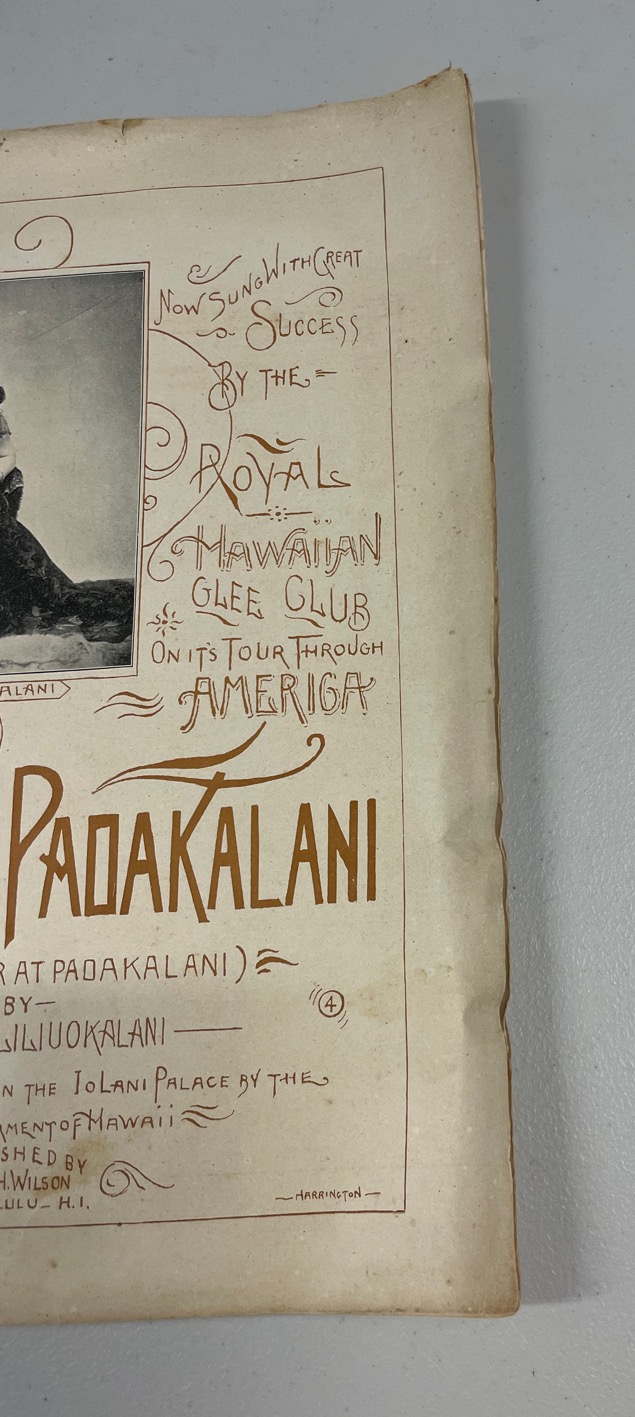 Now Sung With Great
Success
By the
Royal
Hawaiian
Glee Club
On it's Tour Through
America
ALANI
PAOAKALANI
R AT PAOAKALANI)
BY—
LILIUOKALANI
4
N THE IOLANI PALACE BY THE
MENT OF HAWAII
SHED BY
H. WILSON
LULU - H.I.
HARRINGTON